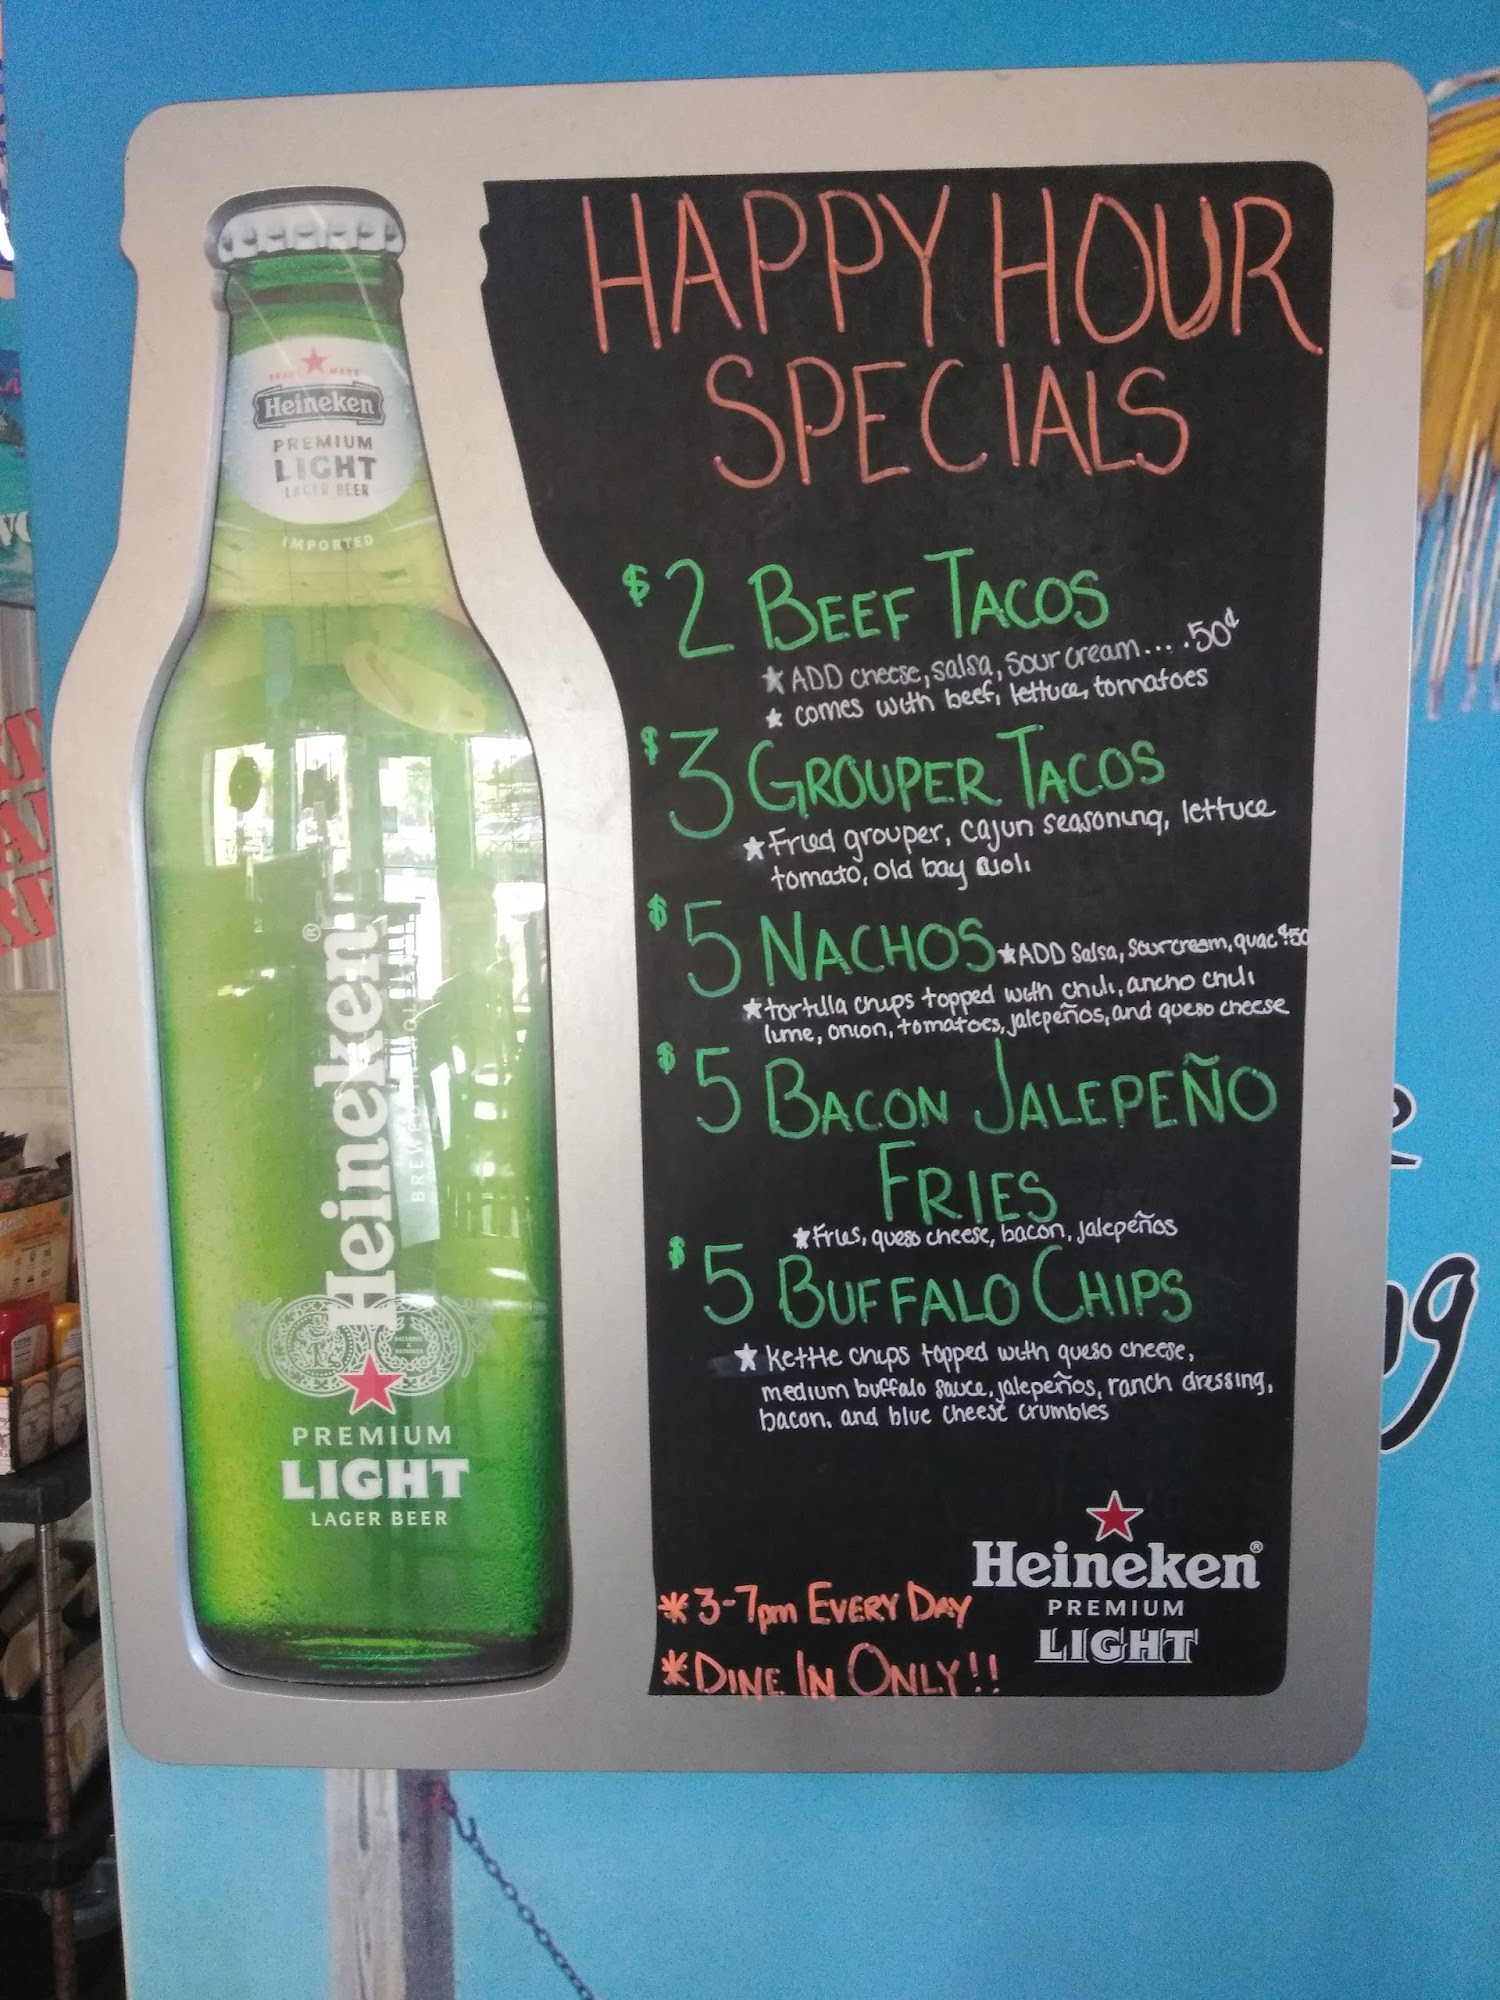 HAPPY HOUR
SPECIALS
$2 BEEF TACOS
★ ADD cheese, salsa, sour cream.....50¢
★ comes with beef, lettuce, tomatoes
$3 GROUPER TACOS
★ Fried grouper, cajun seasoning, lettuce
tomato, old bay aioli
$5 NACHOS ★ADD salsa, sour cream, guac $.50
★ tortilla chips topped with chili, ancho chili
lime, onion, tomatoes, jalepeños, and queso cheese
$5 BACON JALEPEÑO
FRIES
★Fries, queso cheese, bacon, jalepeños
$5 BUFFALO CHIPS
★ kettle chips topped with queso cheese,
medium buffalo sauce, jalepeños, ranch dressing,
bacon, and blue cheese crumbles
* 3-7pm EVERY DAY
* DINE IN ONLY!!
Heineken®
PREMIUM
LIGHT
TRADE MARK
Heineken
PREMIUM
LIGHT
LAGER BEER
IMPORTED
Heineken®
PREMIUM
LIGHT
LAGER BEER